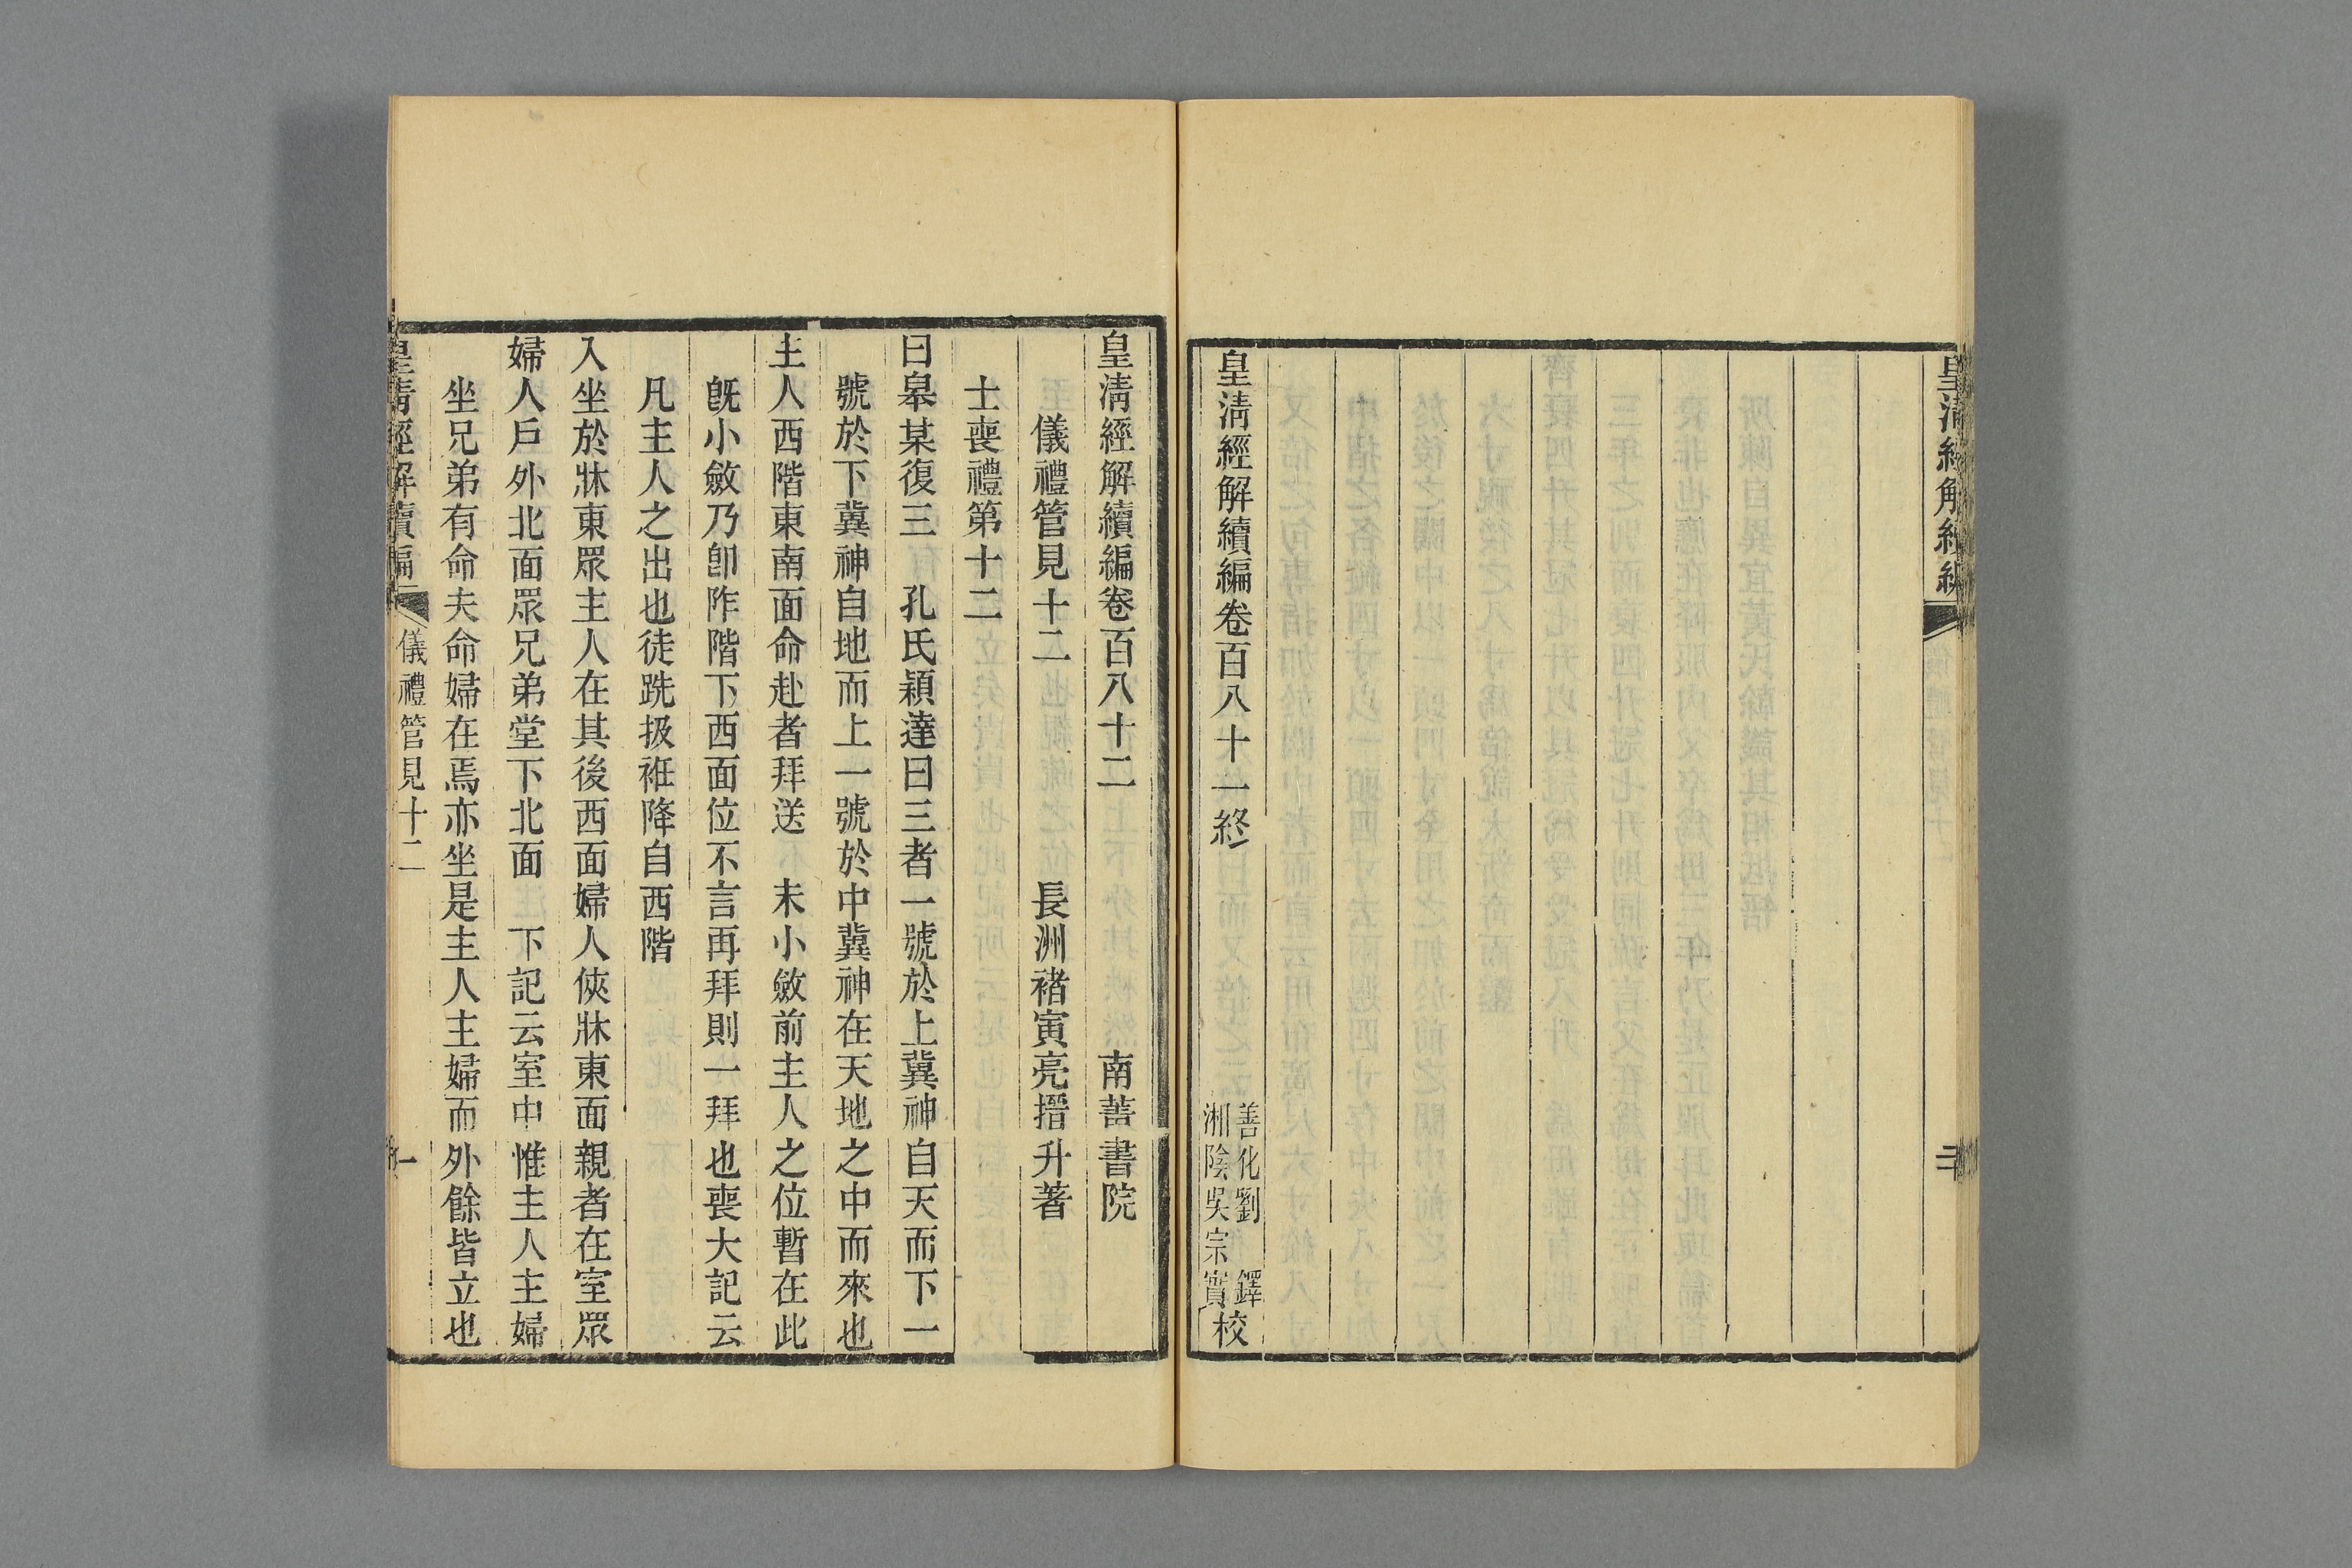 皇清經解續編
皇清經解續編卷百八十一終
善化劉鐸
湘陰吳宗實
校
皇清經解續編卷百八十二
南菁書院
儀禮管見十二
長洲褚寅亮搢升著
士喪禮第十二
曰皋某復三　孔氏穎達曰三者一號於上冀神自天而下一
號於下冀神自地而上一號於中冀神在天地之中而來也
主人西階東南面命赴者拜送　未小斂前主人之位暫在此
既小斂乃卽阼階下西面位不言再拜則一拜也喪大記云
凡主人之出也徒跣扱衽降自西階
入坐於牀東眾主人在其後西面婦人俠牀東面親者在室眾
婦人戶外北面眾兄弟堂下北面　下記云室中惟主人主婦
坐兄弟有命夫命婦在焉亦坐是主人主婦而外餘皆立也
皇清經解續編
儀禮管見十二
一